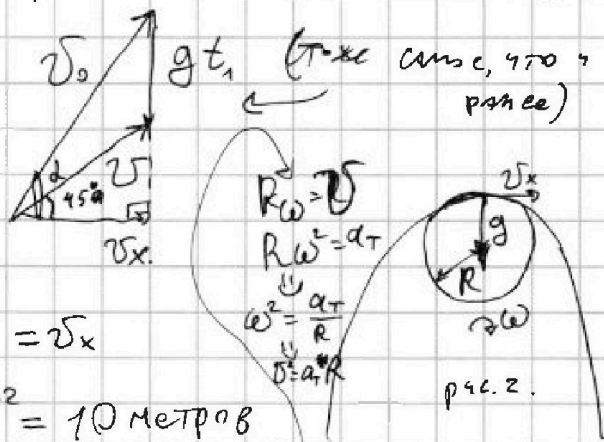 v₀ gt₁ (то же самое, что и
ранее)
α v
45°
vₓ
Rω = v
Rω² = a_т
⇓
ω² = a_т/R
⇓
v² = a_т*R
vₓ
g
R
ω
рис. 2.
= vₓ
² = 10 метров